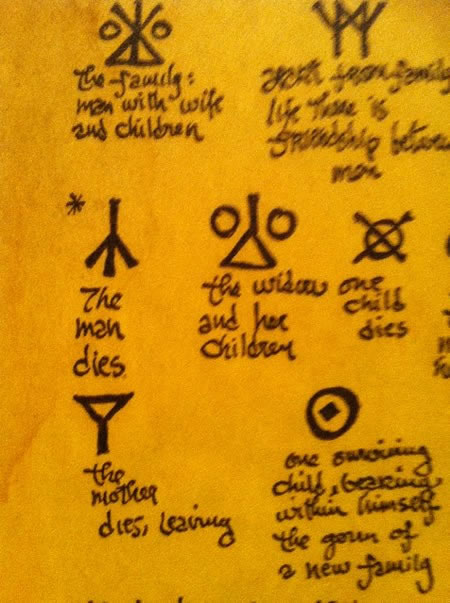 the family:
man with wife
and children
apart from family
life there is
friendship between
men
*
The
man
dies
the widow
and her
children
one
child
dies
the
mother
dies, leaving
one surviving
child, bearing
within himself
the germ of
a new family